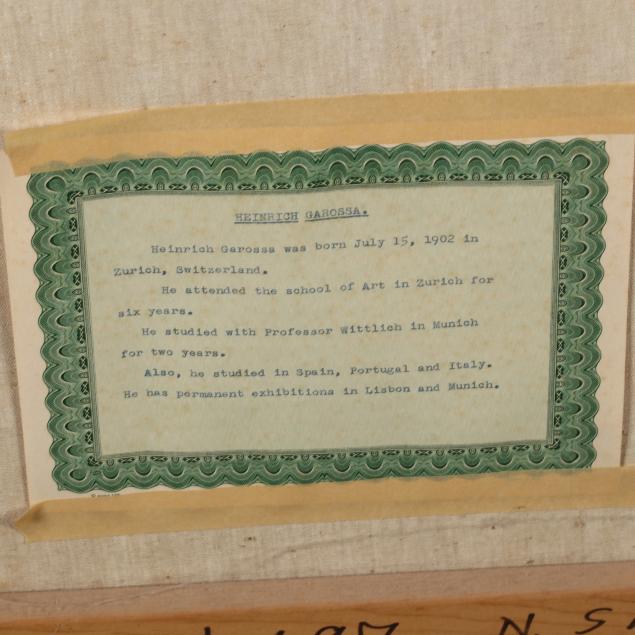 HEINRICH GAROSSA.
Heinrich Garossa was born July 15, 1902 in
Zurich, Switzerland.
He attended the school of Art in Zurich for
six years.
He studied with Professor Wittlich in Munich
for two years.
Also, he studied in Spain, Portugal and Italy.
He has permanent exhibitions in Lisbon and Munich.
N